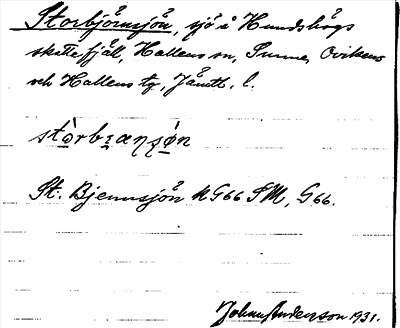 Storbjörnsjön, sjö å Hundshögs
skattefjäll, Hallens sn, Sunne, Ovikens
och Hallens tg, Jämtl. l.
stòrbɪaṇʂǿn
St. Bjennsjön KG66 SM, G66.
Johan Anderson 1931.